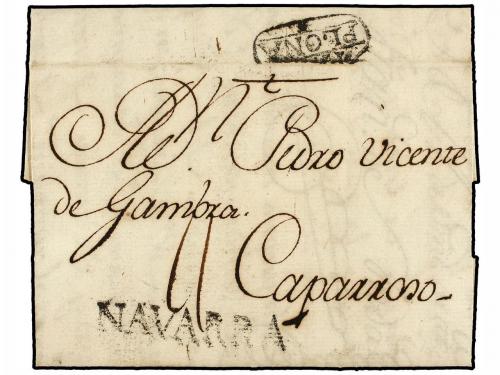 PAM
PLONA
A Dn. Pedro Vicente
de Gambra.
Caparroso
NAVARRA